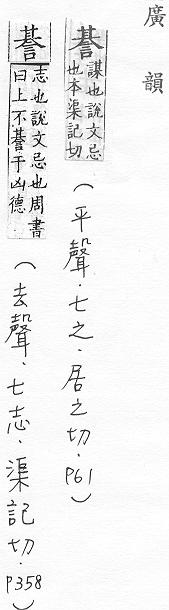 廣韻
諅 謀也說文忌也本渠記切(平聲.七之.居之切.P61)
諅 志也說文忌也周書曰上不諅于凶德(去聲.七志.渠記切.P358)